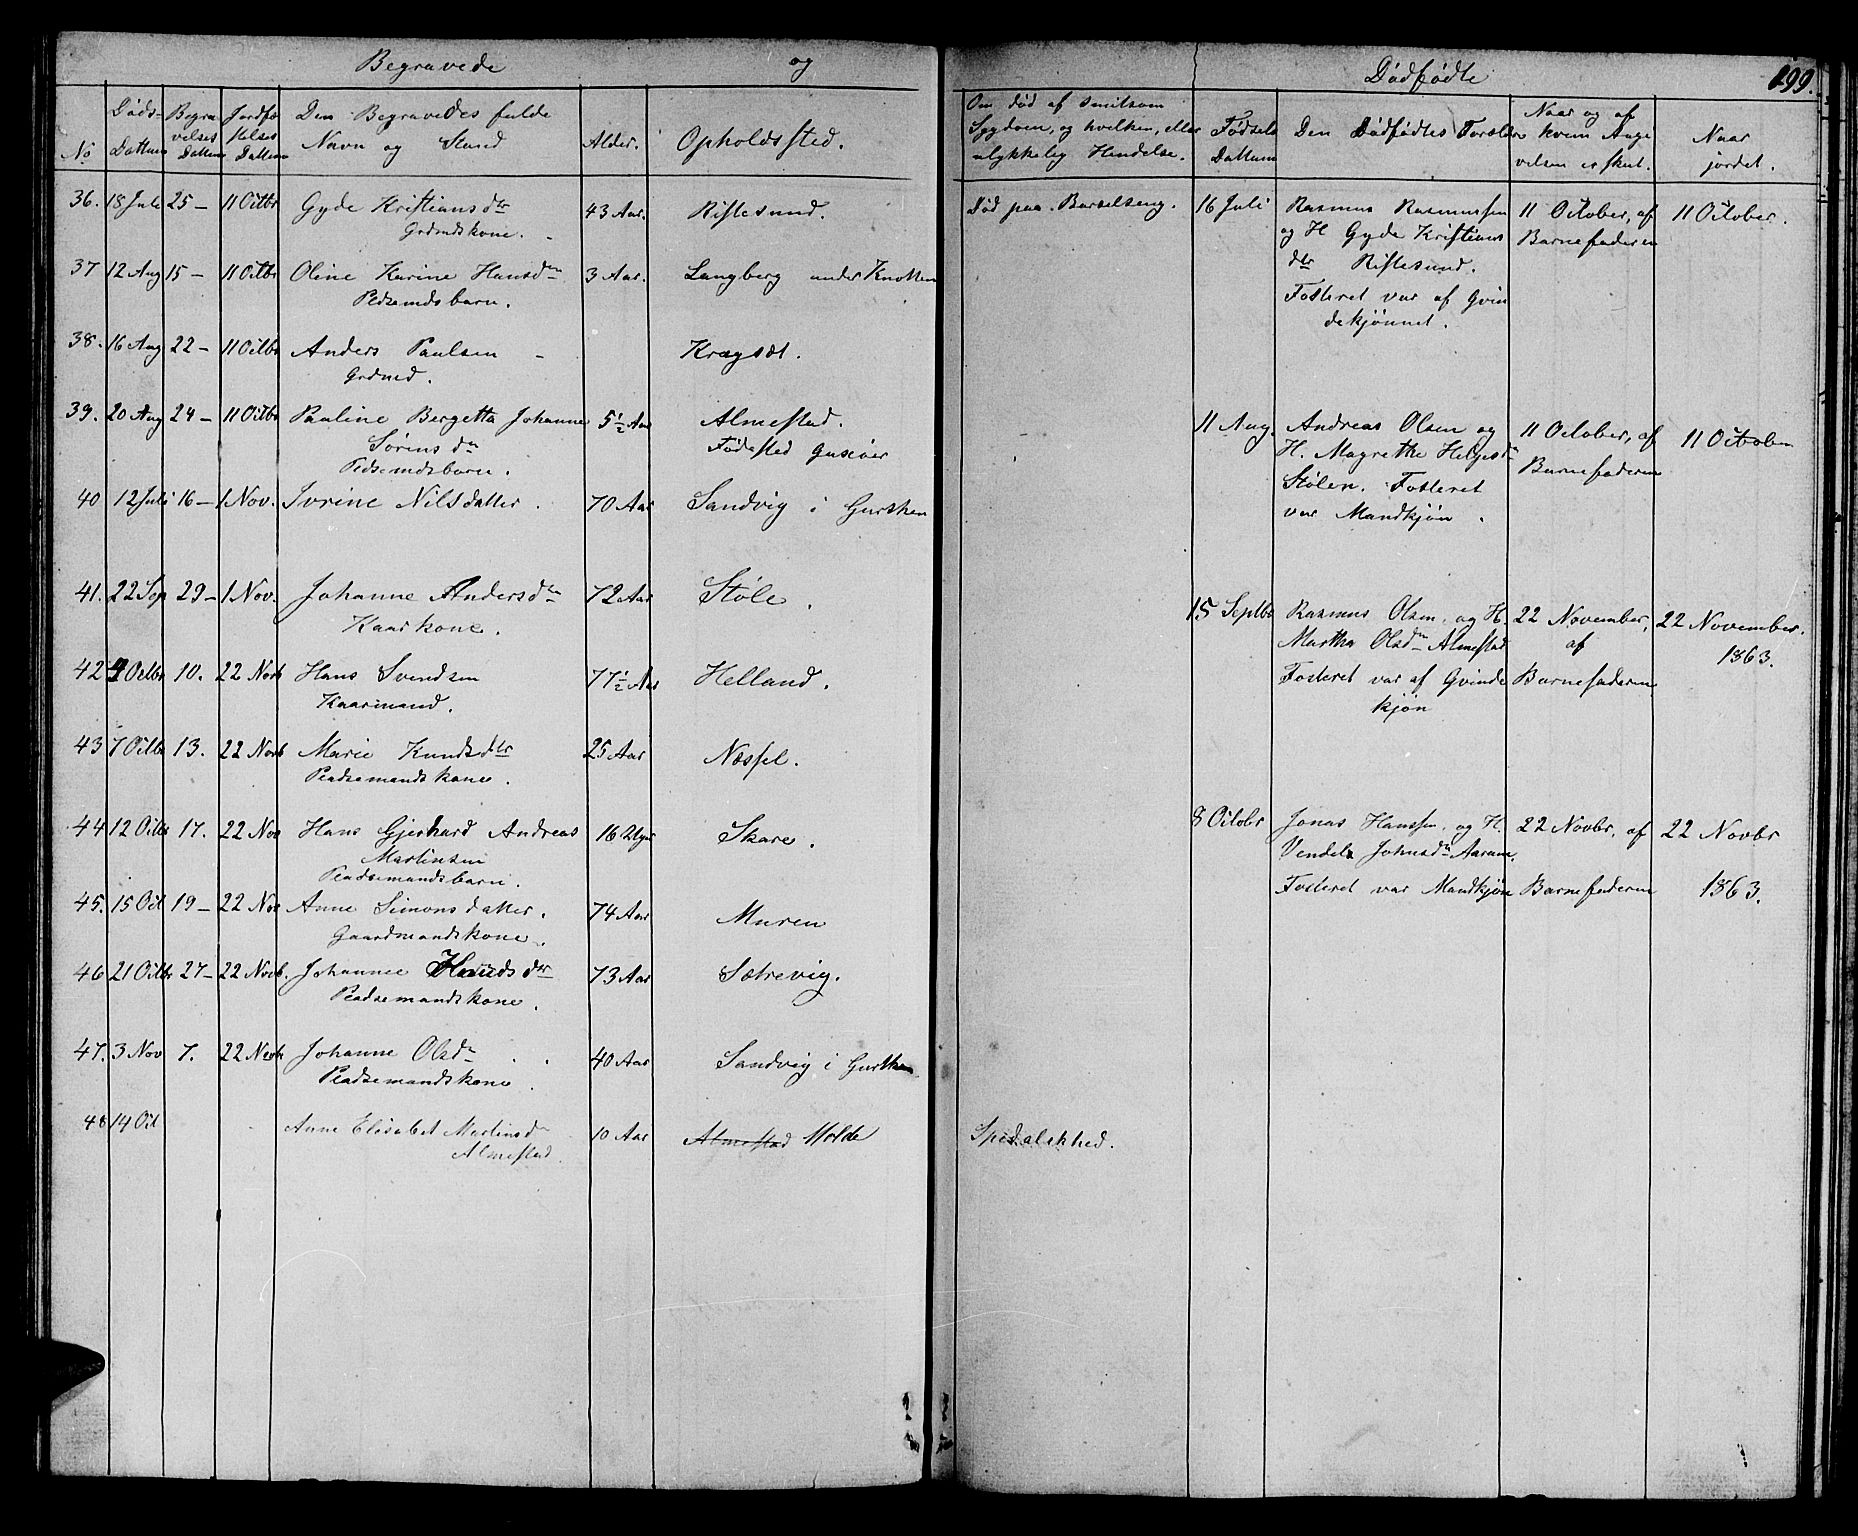 Begravede og
No
Døds-
Dattum
Begra
velses
Dattum
Jordfæ
stelses
Dattum
Den Begravedes fulde
Navn og Stand
Alder.
Opholdssted.
36. 18 Juli 25 – 11 Octbr Gyde Kristiansdtr 43 Aar. Riflesund.
Grdmdskone.
37 12 Aug 15 – 11 Octbr Oline Karine Hansdtr 3 Aar. Langberg under Knotten
Pldsemdsbarn.
38. 16 Aug 22 – 11 Octbr Anders Paulsen – Kragsæt.
Grdmd.
39. 20 Aug 24 – 11 Octbr Pauline Bergetta Johanne 5½ Aar Almestad.
Sørensdtr Fødested
Pldsemdsbarn.
40 12 Juli 16 – 1 Nov. Ivrine Nilsdatter. 70 Aar Sandvig i Gursken
41. 22 Sep 29 – 1 Nov. Johanne Andersdtr 72 Aar Støle.
Kaarkone.
42 Octbr 10. 22 Novb Hans Svendsen 77½ Aar Helland.
Kaarmand.
43 7 Octbr 13. 22 Novb Marie Knudsdtr 25 Aar Næssel.
Pladsemandskone.
44 12 Octbr 17. 22 Nov Hans Gjerhard Andreas 16 Uger Skare.
Martinsen
Pladsemandsbarn.
45. 15 Oct 19 – 22 Nov Anne Simonsdatter. 74 Aar Muren
Gaardmandskone.
46 21 Octbr 27 – 22 Novb. Johanne 73 Aar Sætrevig.
Pladsemandskone.
47. 3 Nov 7. 22 Novb Johanne Olsdtr 40 Aar Sandvig i Gursken
Pladsemandskone.
48 14 Oct Anne Elisabet Martinsdtr 10 Aar Almestad Molde
Almestad.
Dødfødte 199.
Om død af smitsom
Sygdom, og hvilken, eller
ulykkelig Hendelse.
Fødsels
Dattum
Den Dødfødtes Forældre
Naar og af
hvem Angi
velsen er skeet.
Naar
jordet.
Død paa Barselseng. 16 Juli Rasmus Rasmussen 11 October, af 11 October.
og H. Gyde Kristians Barnefaderen
dtr Riflesund.
Fosteret var af Qvin
dekjønnet.
11 Aug. Andreas Olsen og 11 October, af 11 October
H. Magrethe Helgesdtr Barnefaderen
Stølen. Fosteret
var Mandkjøn.
15 Septbr Rasmus Olsen, og H. 22 November, 22 November.
Martha Olsdtr Almestad af 1863.
Fosteret var af Qvinde Barnefaderen
kjøn
8 Octobr Jonas Hanssen, og H. 22 Novbr, af 22 Novbr
Vendel Johnsdtr Aarum.
Fosteret var Mandkjøn Barnefaderen 1863.
Spedalskhed.